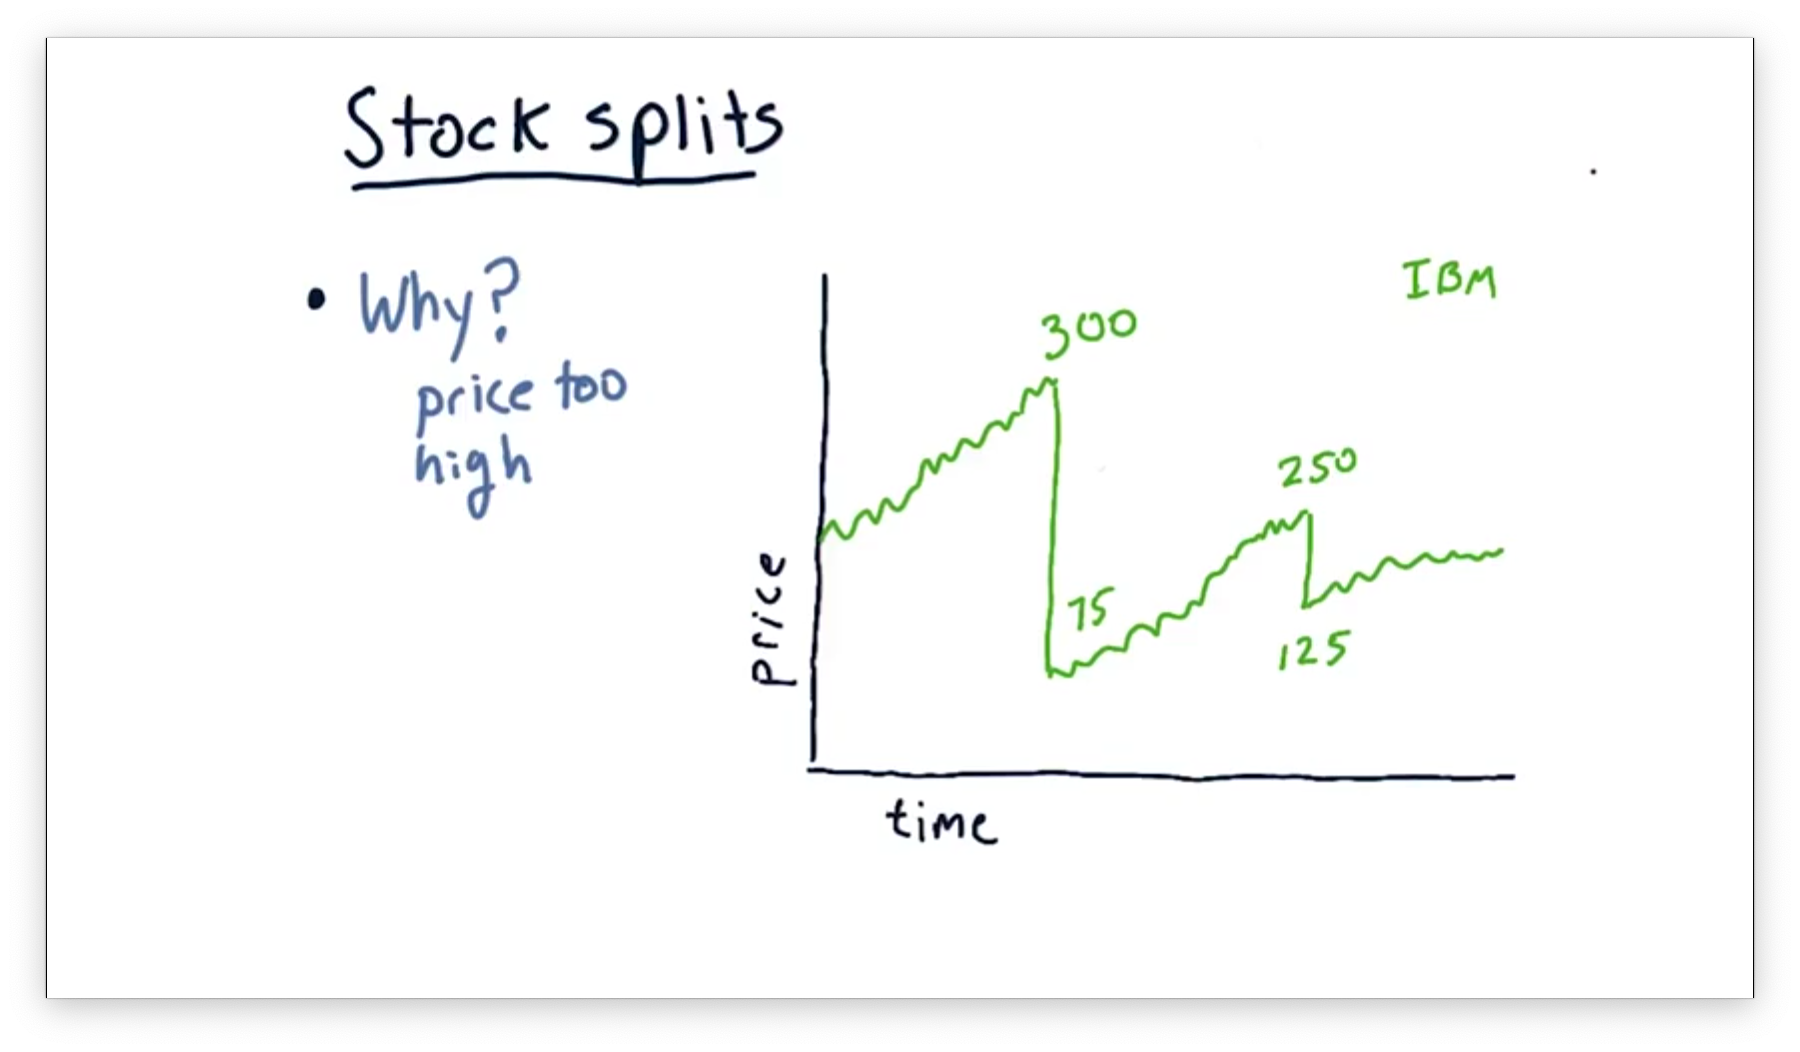 Stock splits
• Why?
price too
high
IBM
300
250
75
125
price
time